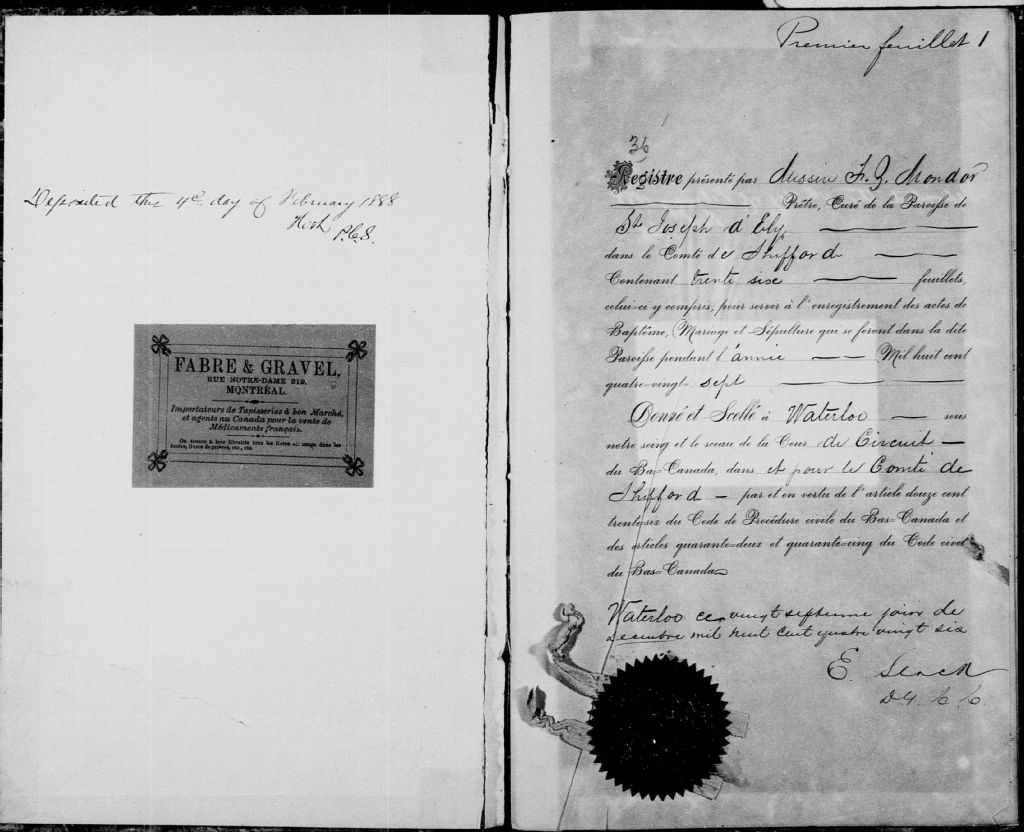 Deposited this 4th day of February 1888
P.C.S.
FABRE & GRAVEL,
RUE NOTRE-DAME 219,
MONTRÉAL.
Importateurs de Tapisseries à bon Marché,
et agents au Canada pour la vente de
Médicaments français.
On trouve à leur librairie tous les livres en usage dans les
écoles, livres de prières, etc., etc.
Premier feuillet 1
36
Registre présenté par Messire F. Z. Mondor
Prêtre, Curé de la Paroisse de
St Joseph d'Ely
dans le Comté de Shefford
Contenant trente six feuillets,
celui-ci y compris, pour servir à l'enregistrement des actes de
Baptême, Mariage et Sépulture qui se feront dans la dite
Paroisse pendant l'année Mil huit cent
quatre-vingt-sept
Donné et Scellé à Waterloo sous
notre seing et le sceau de la Cour de Circuit
du Bas-Canada, dans et pour le Comté de
Shefford par et en vertu de l'article douze cent
trente-six du Code de Procédure civile du Bas-Canada et
des articles quarante-deux et quarante-cinq du Code civil
du Bas-Canada
Waterloo ce vingt septieme jour de
decembre mil huit cent quatre vingt six
E.
C. C.